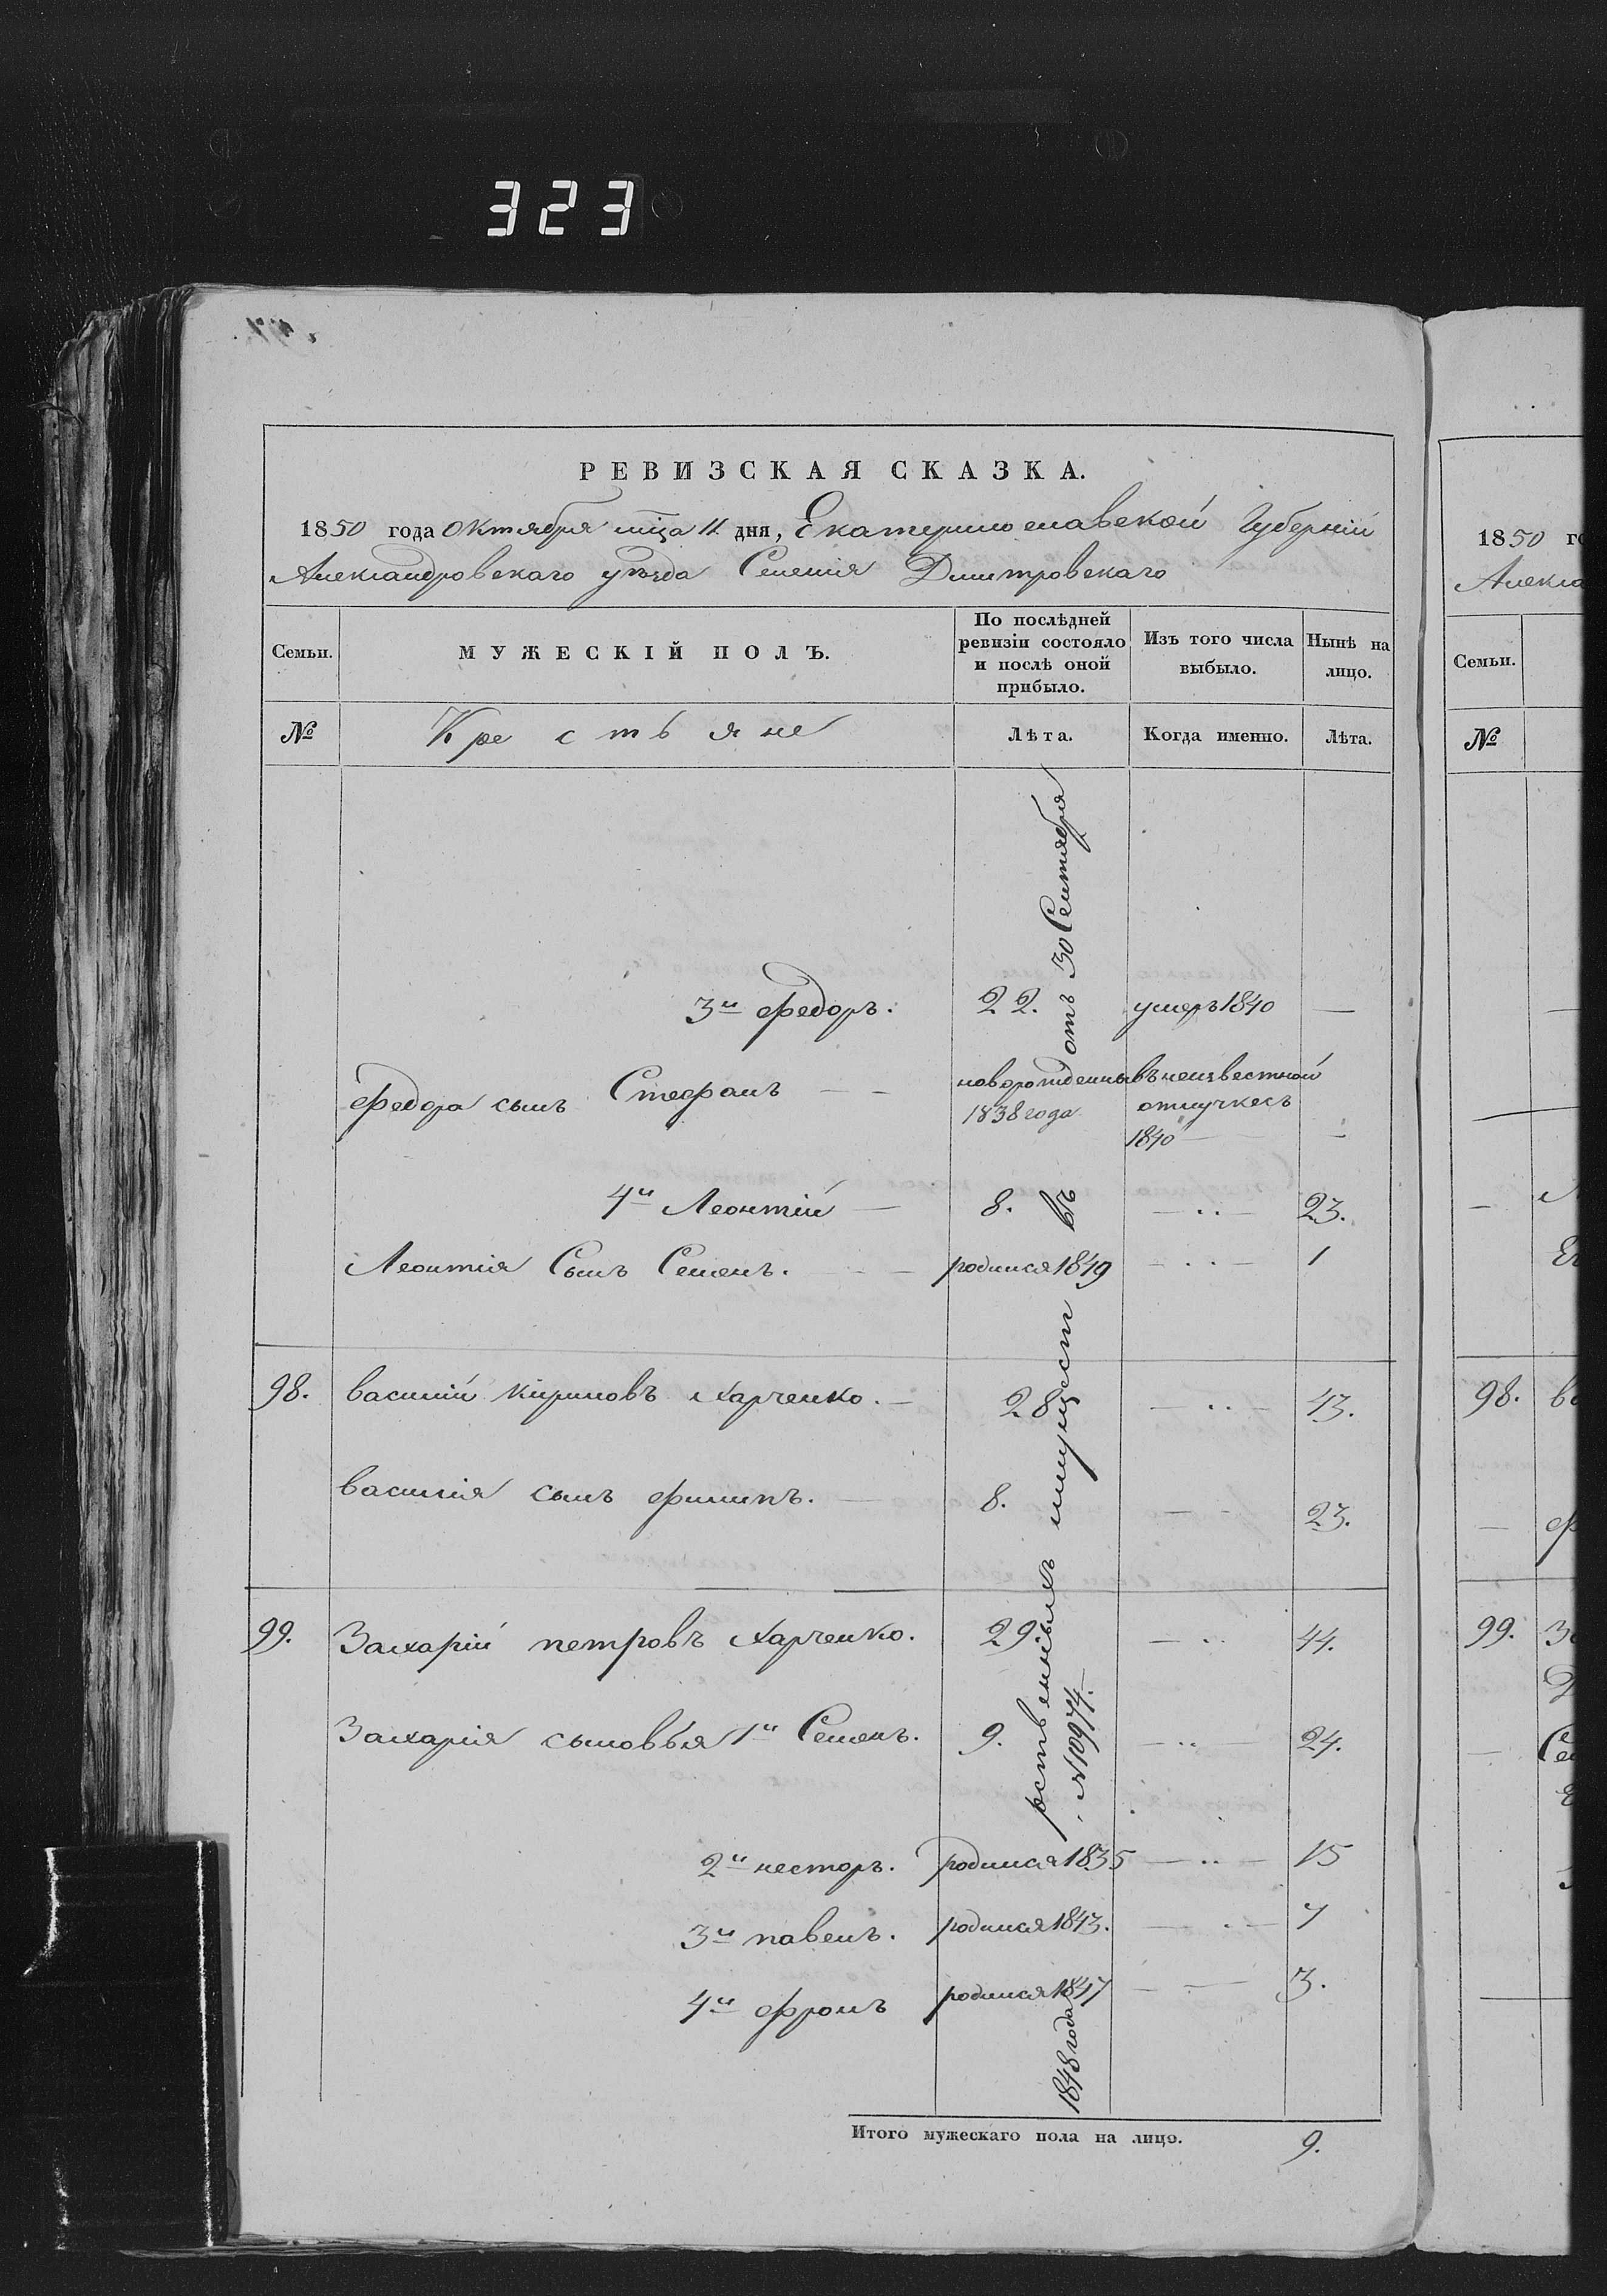 323
РЕВИЗСКАЯ СКАЗКА.
1850 года Октября мца 11 дня, Екатеринославской Губерніи
Александровскаго уѣзда Селенія Дмитровскаго
Семьи. МУЖЕСКІЙ ПОЛЪ. По послѣдней ревизіи состояло и послѣ оной прибыло. Изъ того числа выбыло. Нынѣ на лицо.
№ Крестьяне Лѣта. Когда именно. Лѣта.
3й Федоръ. 22. умеръ 1840 —
Федора сынъ Стефанъ — новорожденны 1838 года въ неизвестной отлучкесъ 1840 —
4й Леонтій — 8. — 23.
Леонтія Сынъ Семенъ. — родился 1849 — 1
98. василій кириловъ Харченко. — 28 — 43.
василія сынъ филипъ. — 8. — 23.
99. Захарій петровъ Харченко. 29. — 44.
Захарія сыновья 1й Семенъ. 9. — 24.
2й несторъ. родился 1835 — 15
3й павелъ. родился 1843. — 7
4й фролъ родился 1847 — 3.
1848 года
рственныхъ имуществ
въ
отъ 30 Сентября
№ 10974.
Итого мужескаго пола на лицо. 9.
1850 го
Алекса
Семьи.
№
98. ва
99. За